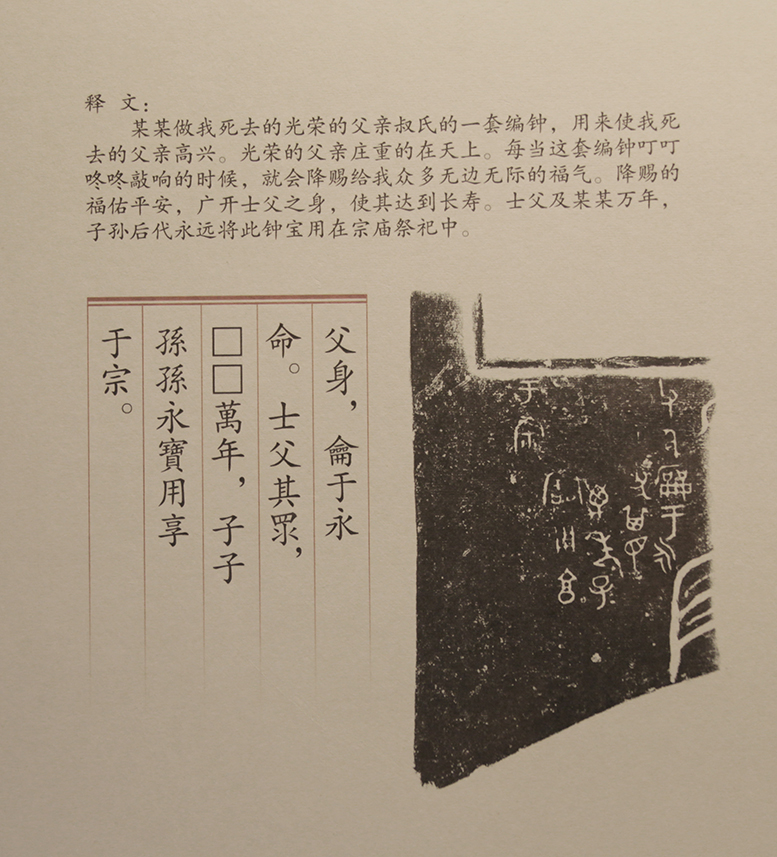 释 文：
某某做我死去的光荣的父亲叔氏的一套编钟，用来使我死
去的父亲高兴。光荣的父亲庄重的在天上。每当这套编钟叮叮
咚咚敲响的时候，就会降赐给我众多无边无际的福气。降赐的
福佑平安，广开士父之身，使其达到长寿。士父及某某万年，
子孙后代永远将此钟宝用在宗庙祭祀中。
父身，龠于永
命。士父其眔，
□□萬年，子子
孫孫永寶用享
于宗。